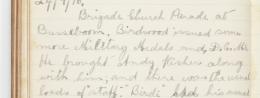 Brigade Church Parade at
Busseboom. Birdwood issued some
more Military Medals and D.C.Ms.
He brought Andy Fisher along
with him, and there was the usual
loads of "staff". "Birdie" had his usual